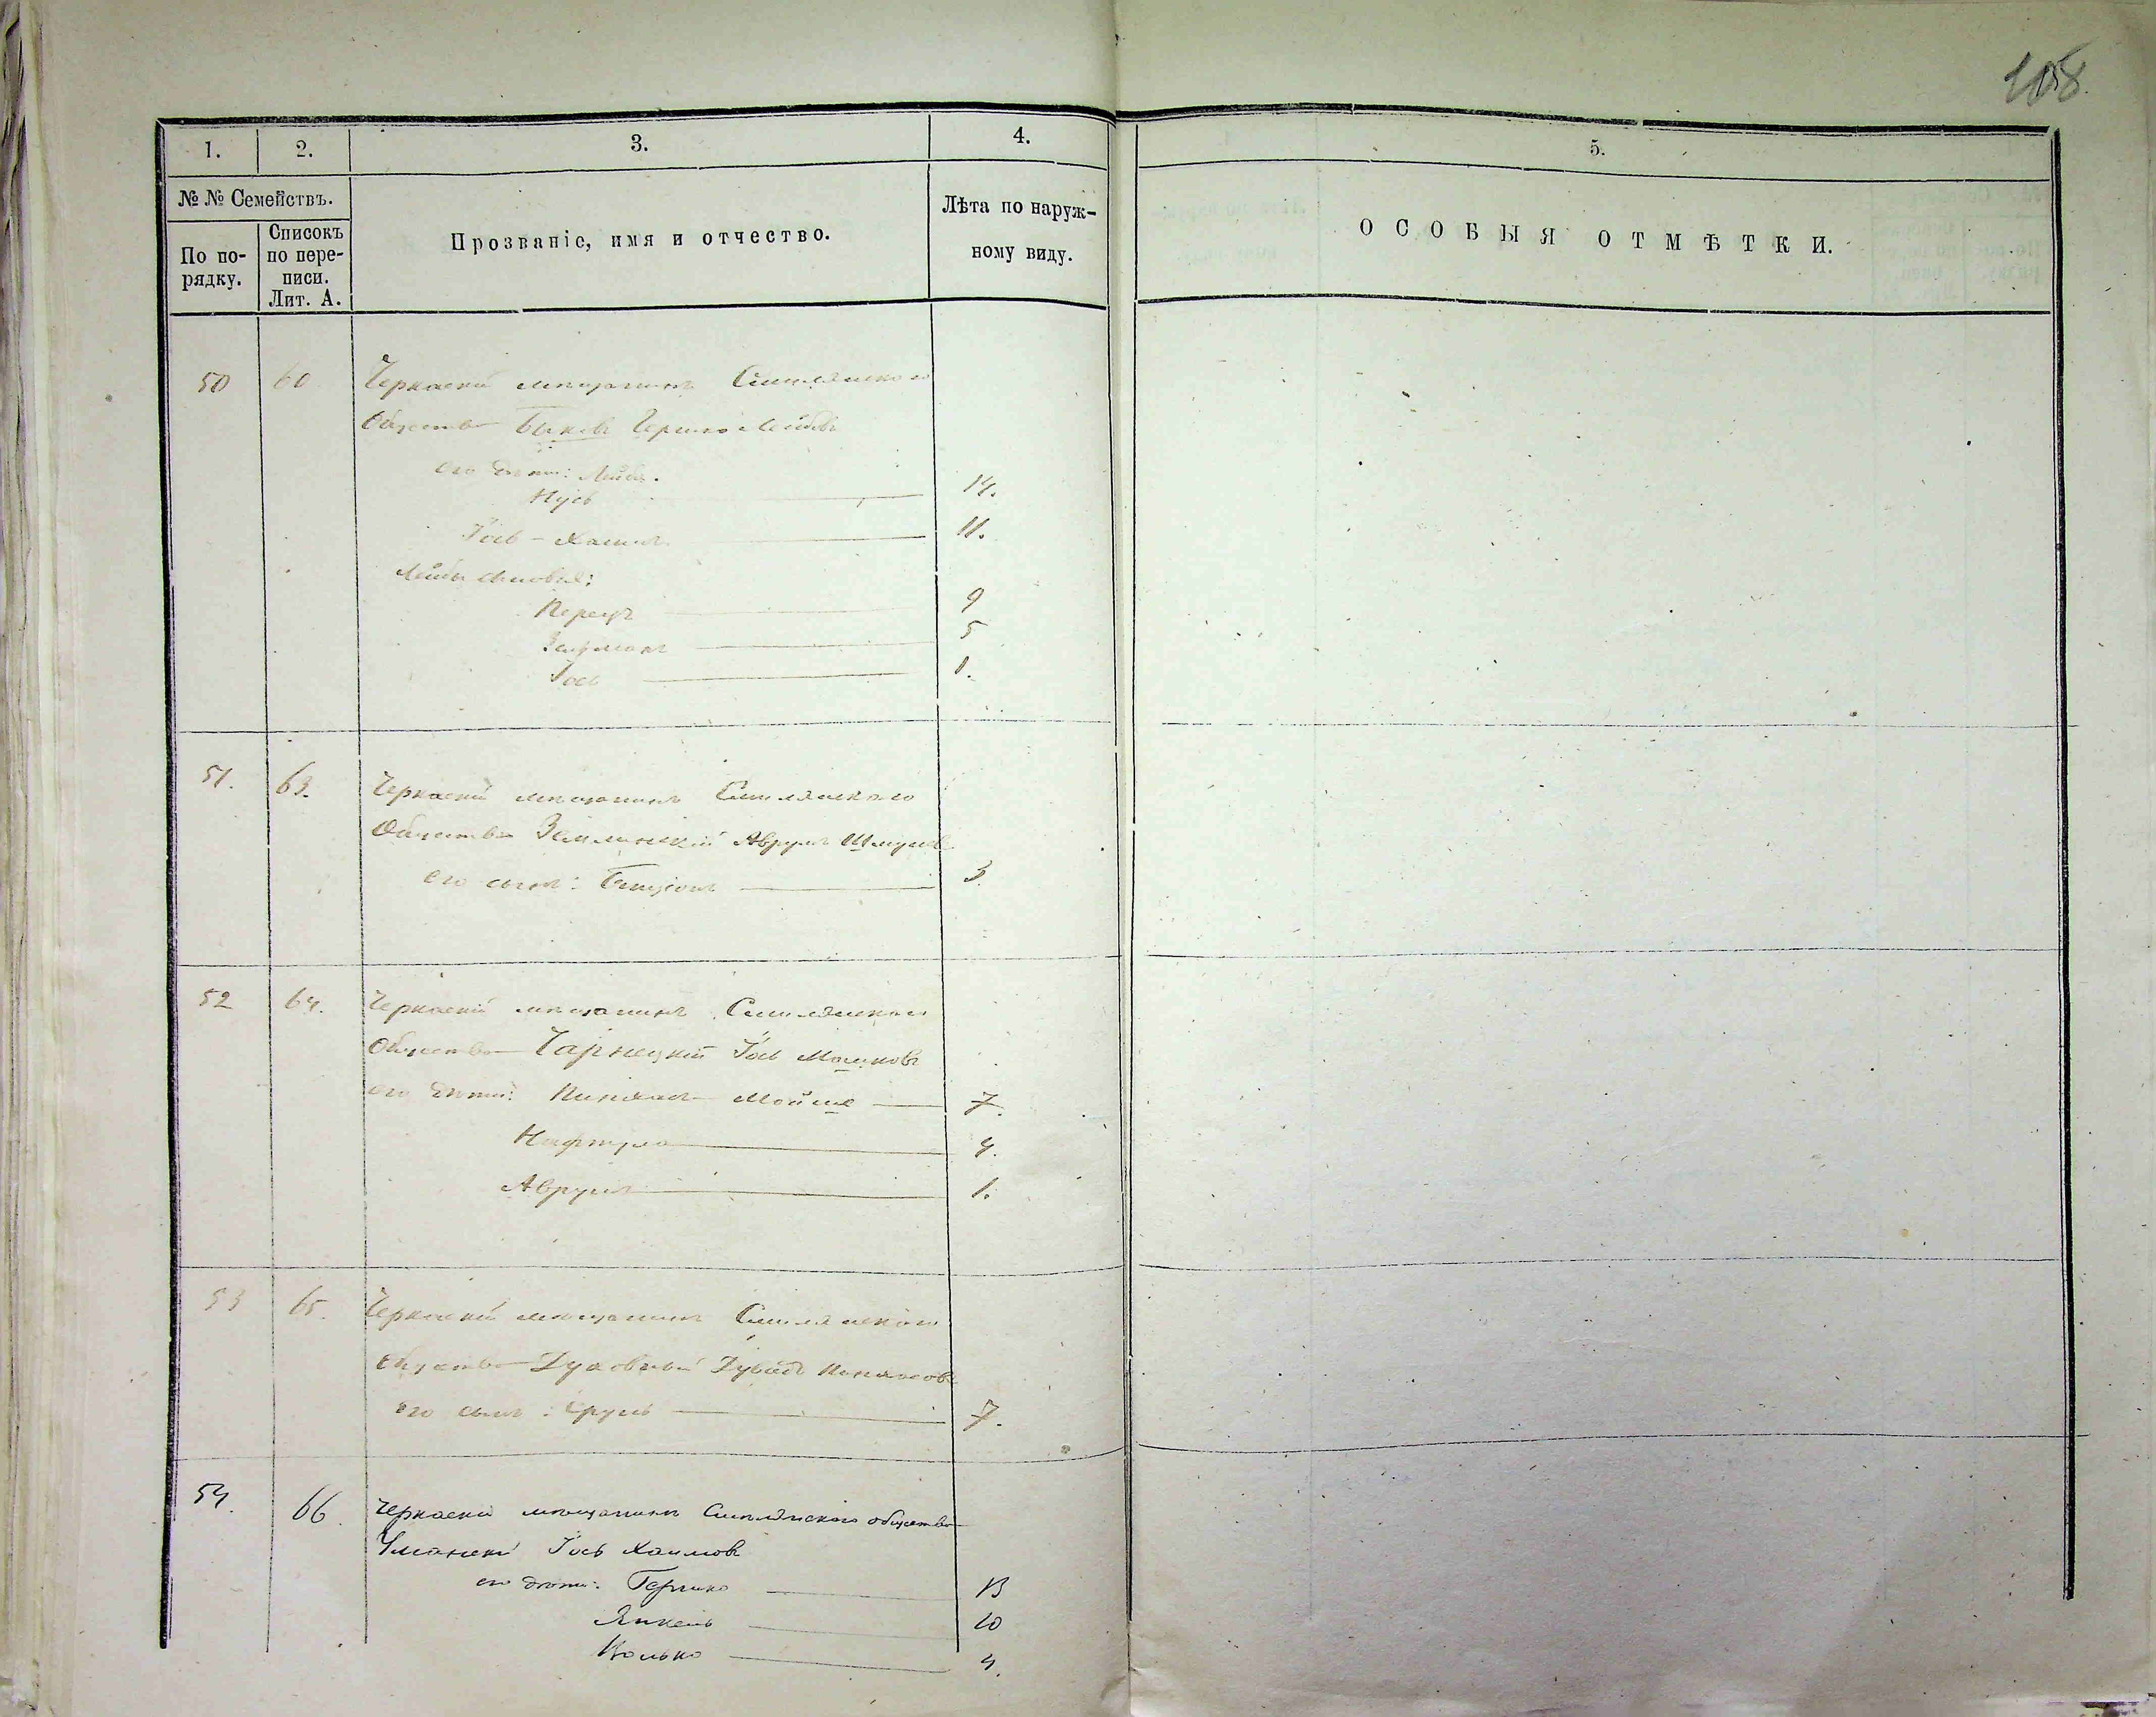 108.
1. 2. 3. 4. 5.
№ № Семействъ.
По порядку.
Списокъ по переписи. Лит. А.
Прозваніе, имя и отчество.
Лѣта по наружному виду.
ОСОБЫЯ ОТМѢТКИ.
50 60 Черкаскій мѣщанинъ Смилянскаго
Общества Быковъ Гершко Лейбовъ
его дѣти: Лейба.
Нусь 14.
Іось-Хаимъ 11.
Лейбы сыновья:
Перецъ 9
5
Іось 1.
51. 63. Черкаскій мѣщанинъ Смилянскаго
Общества Аврумъ Шмулев
его сынъ: Бенціонъ 3
52 64. Черкаскій мѣщанинъ Смилянскаго
Общества Чарнецкій Іось Мошковъ
его дѣти: Пинхасъ Мойше 7.
Нафтула 4.
Аврумъ 1.
53 65. Черкаскій мѣщанинъ Смилянскаго
Общества Духовный Дувидъ Пинхасовъ
его сынъ: Сруль 7.
54. 66. Черкаскій мѣщанинъ Смилянскаго общества
Уманскій Іось Хаимовъ
его дѣти: Гершко 13
Янкель 10
4.